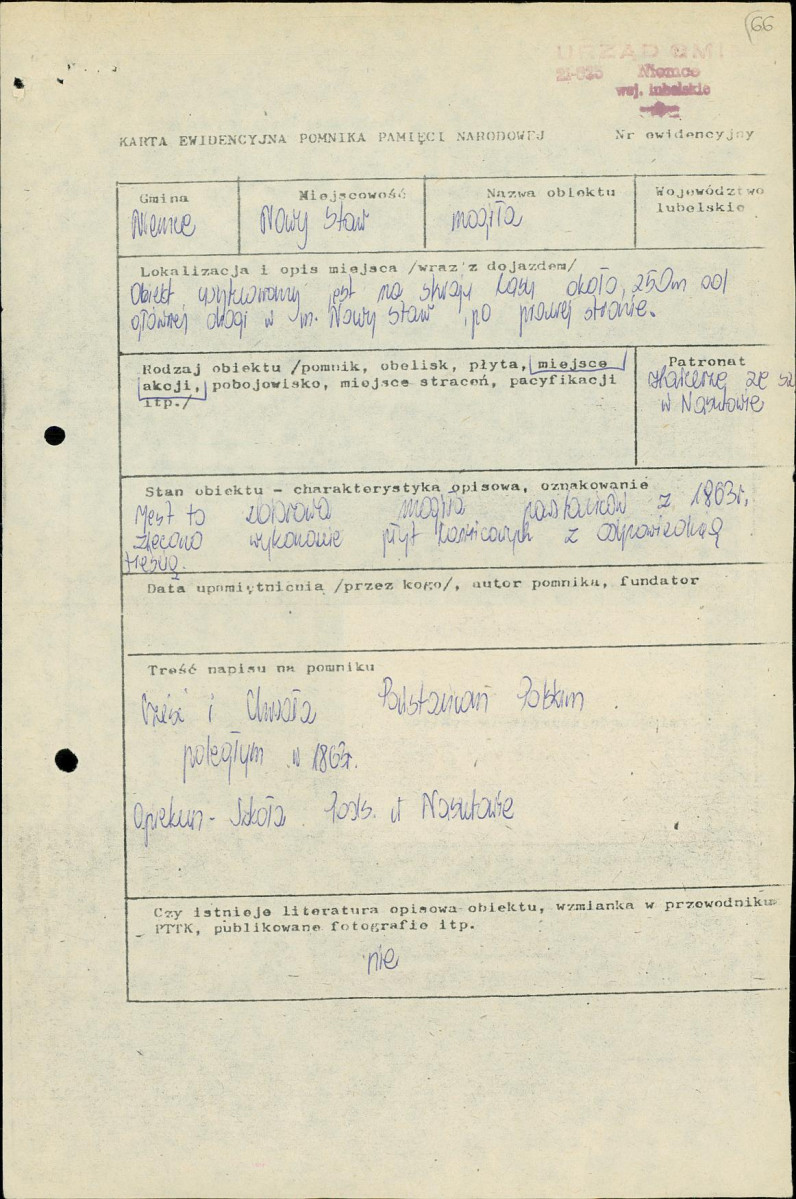 66
URZĄD GMI
21-025 Niemce
woj. lubelskie
KARTA EWIDENCYJNA POMNIKA PAMIĘCI NARODOWEJ Nr ewidencyjny
Gmina Miejscowość Nazwa obiektu Województwo
lubelskie
Niemce Nowy Staw mogiła
Lokalizacja i opis miejsca /wraz z dojazdem/
Obiekt usytuowany jest na skraju lasu około 250m od
głównej drogi w m. Nowy Staw, po prawej stronie.
Rodzaj obiektu /pomnik, obelisk, płyta, miejsce
akcji, pobojowisko, miejsce straceń, pacyfikacji
itp./
Patronat
Harcerze ze sz
w Nasutowie
Stan obiektu - charakterystyka opisowa, oznakowanie
Jest to zbiorowa mogiła powstańców z 1863r,
zlecono wykonanie płyt z odpowiednią
treścią.
Data upamiętnienia /przez kogo/, autor pomnika, fundator
Treść napisu na pomniku
Cześć i Chwała Powstańcom Polskim
poległym w 1863r.
Opiekun - Szkoła Pods. w Nasutowie
Czy istnieje literatura opisowa obiektu, wzmianka w przewodniku
PTTK, publikowane fotografie itp.
nie